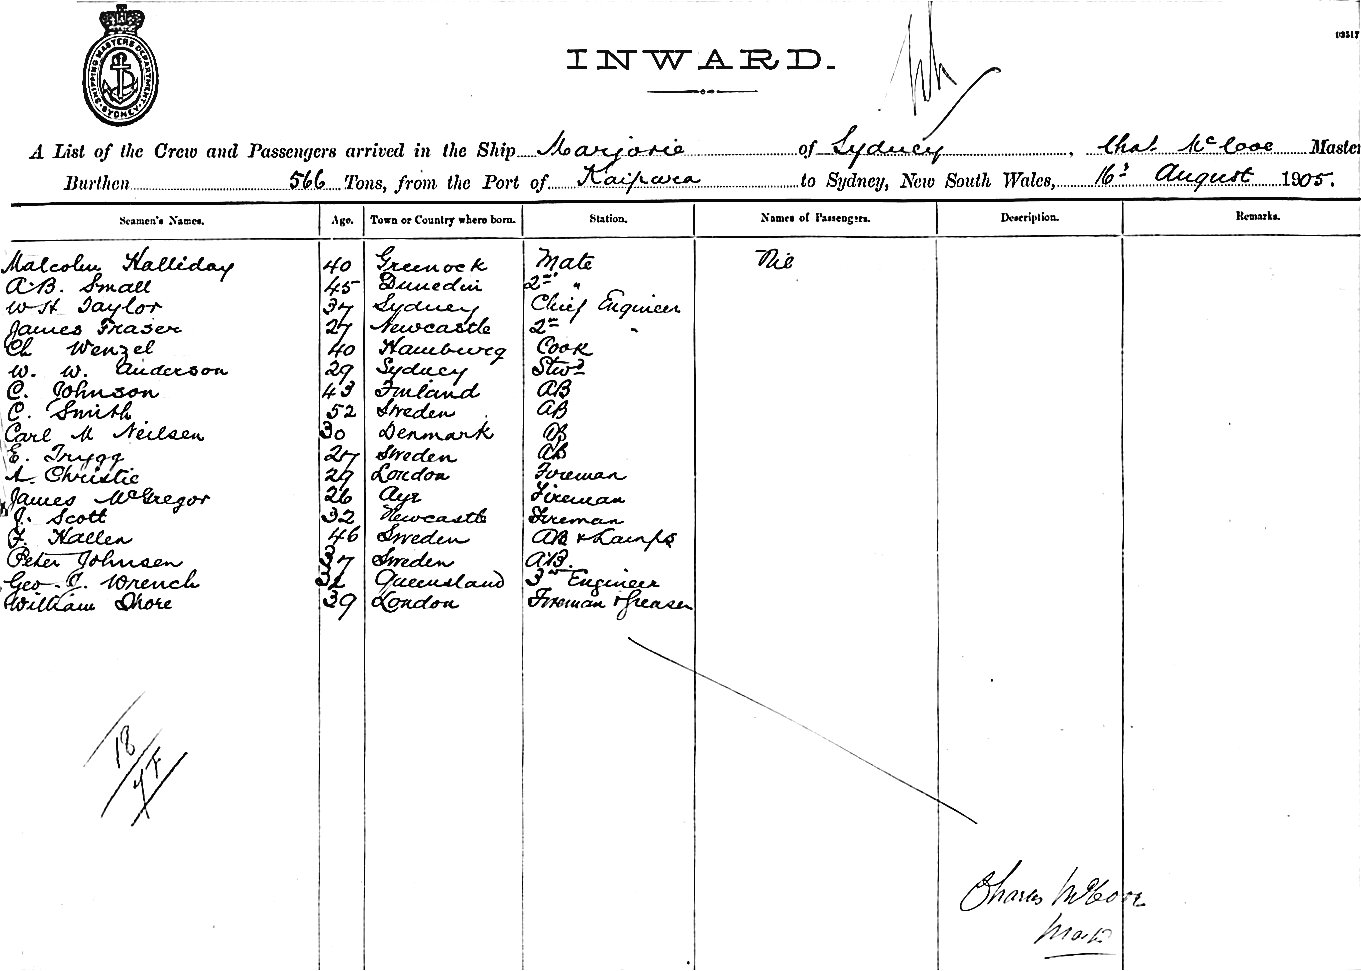 SHIPPING MASTERS DEPARTMENT SYDNEY
INWARD.
A List of the Crew and Passengers arrived in the Ship Marjorie of Sydney, Chas. McCooe Master
Burthen 566 Tons, from the Port of Kaipara to Sydney, New South Wales, 16th August 1905.
Seamen's Names. Age. Town or Country where born. Station. Names of Passengers. Description. Remarks.
Malcolm Halliday 40 Greenock Mate Nil
A.B. Small 45 Dunedin 2nd "
W H Taylor 37 Sydney Chief Engineer
James Fraser 27 Newcastle 2nd "
Ch Wenzel 40 Hamburg Cook
W. W. Anderson 29 Sydney Stwd
C. Johnson 43 Finland AB
C. Smith 52 Sweden AB
Carl M Neilsen 30 Denmark OS
E. Trygg 27 Sweden AB
A. Christie 29 London Fireman
James McGregor 26 Ayr Fireman
J. Scott 32 Newcastle Fireman
F. Hallen 46 Sweden AB & Lamps
Peter Johnsen 37 Sweden A.B.
Geo. J. Wrench 32 Queensland 3rd Engineer
William Shore 39 London Fireman & Greaser
18
Charles McCooe